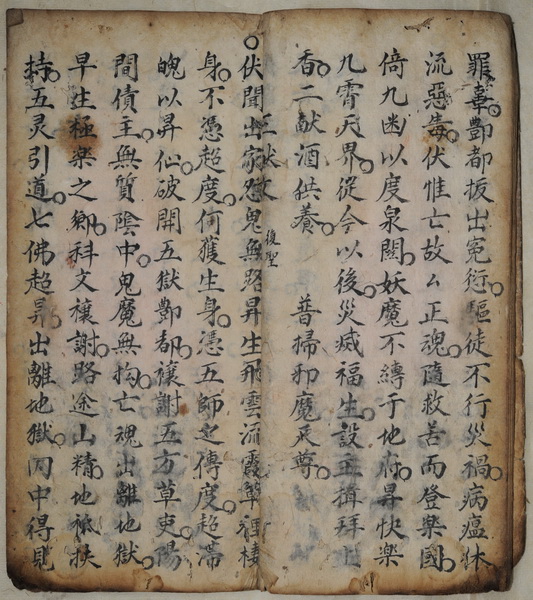 罪辜酆都拔出冤愆驅徒不行災禍病瘟休
流惡毒伏惟亡故厶正魂隨救苦而登樂國
倚九幽以度泉關妖魔不縛于地府昇快樂
九霄天界從今以後災咸福生設主稽拜上
香二献酒供養 普掃邪魔天尊
三献文 後聖
伏聞出家忽鬼無路昇生飛雲流霞 棲
身不憑超度何獲生身憑五師之傳度超滯
魄以昇仙破開五獄酆都禳謝五方草吏陽
間債主無質陰中鬼魔無拘亡魂出離地獄
早生極楽之鄉科文禳謝路途山精地祇扶
持五灵引道七佛超昇出離地獄門中得見